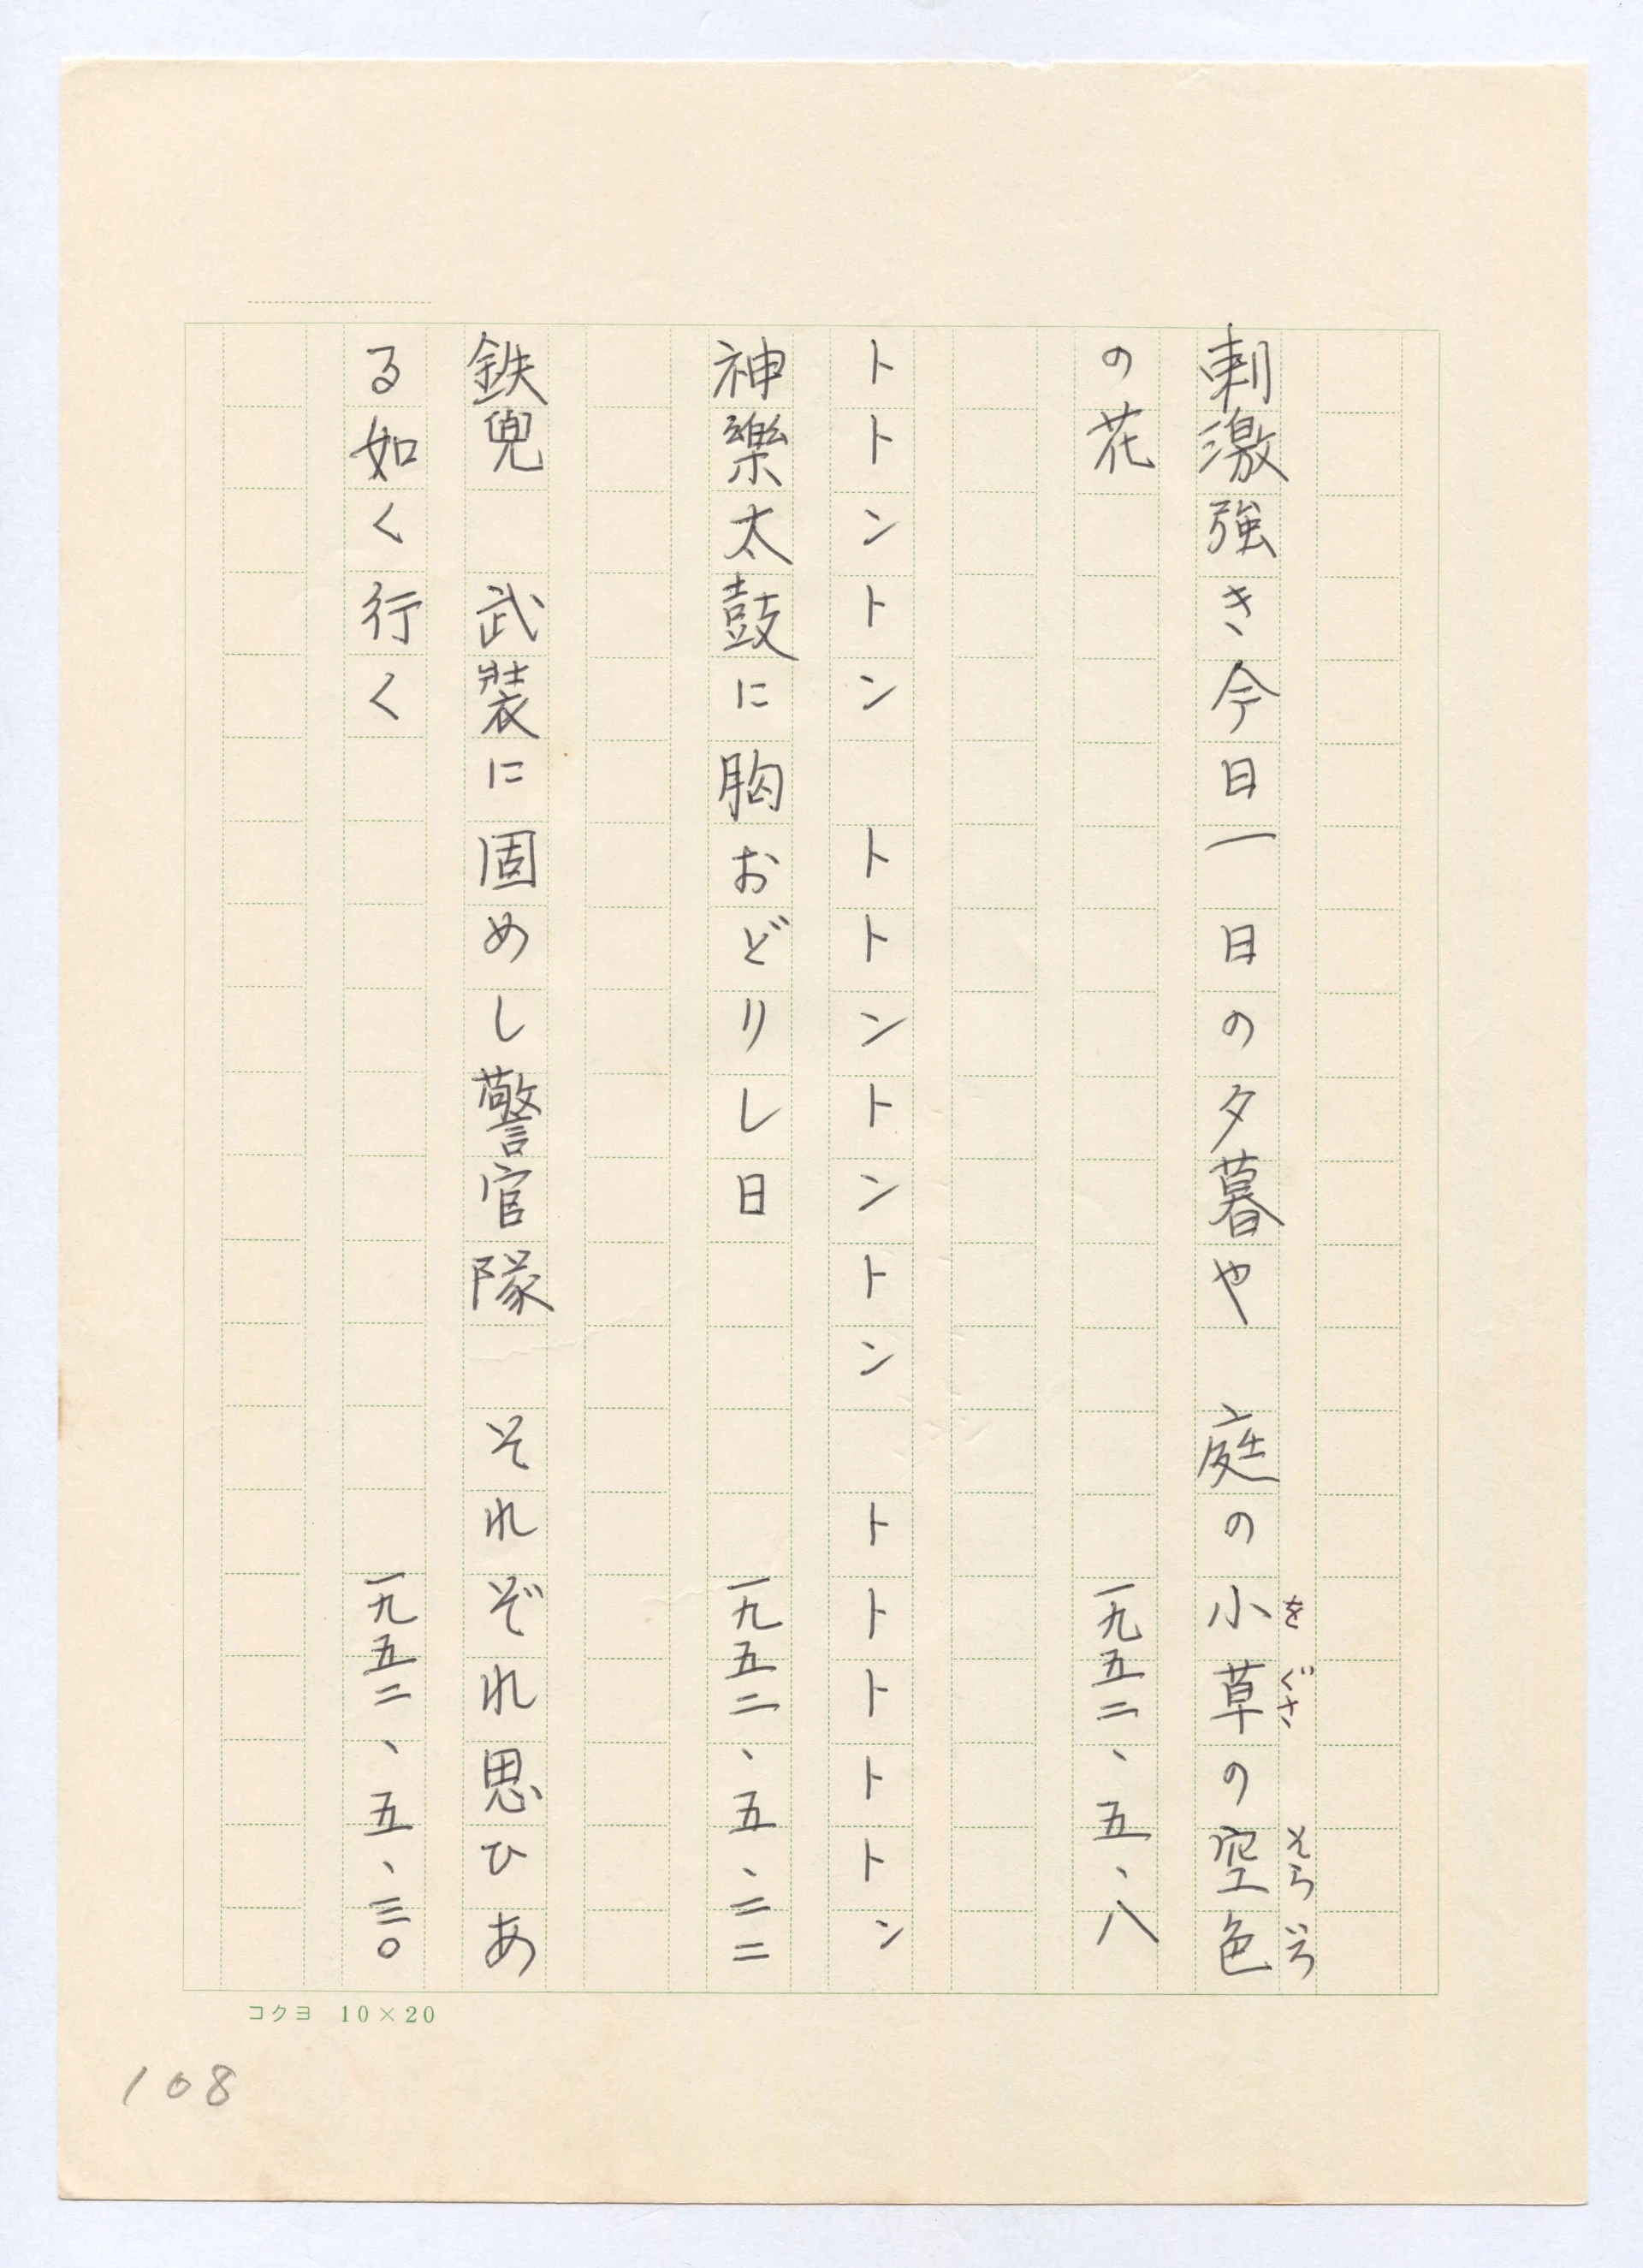 刺激強き今日一日の夕暮や　庭の小草の空色
をぐさ　そらいろ
の花　一九五二、五、八
トトントン　トトントントン　トトトトトン
神樂太鼓に胸おどりし日　一九五二、五、二二
鉄兜　武裝に固めし警官隊　それぞれ思ひあ
る如く行く　一九五二、五、三〇
コクヨ 10×20
108